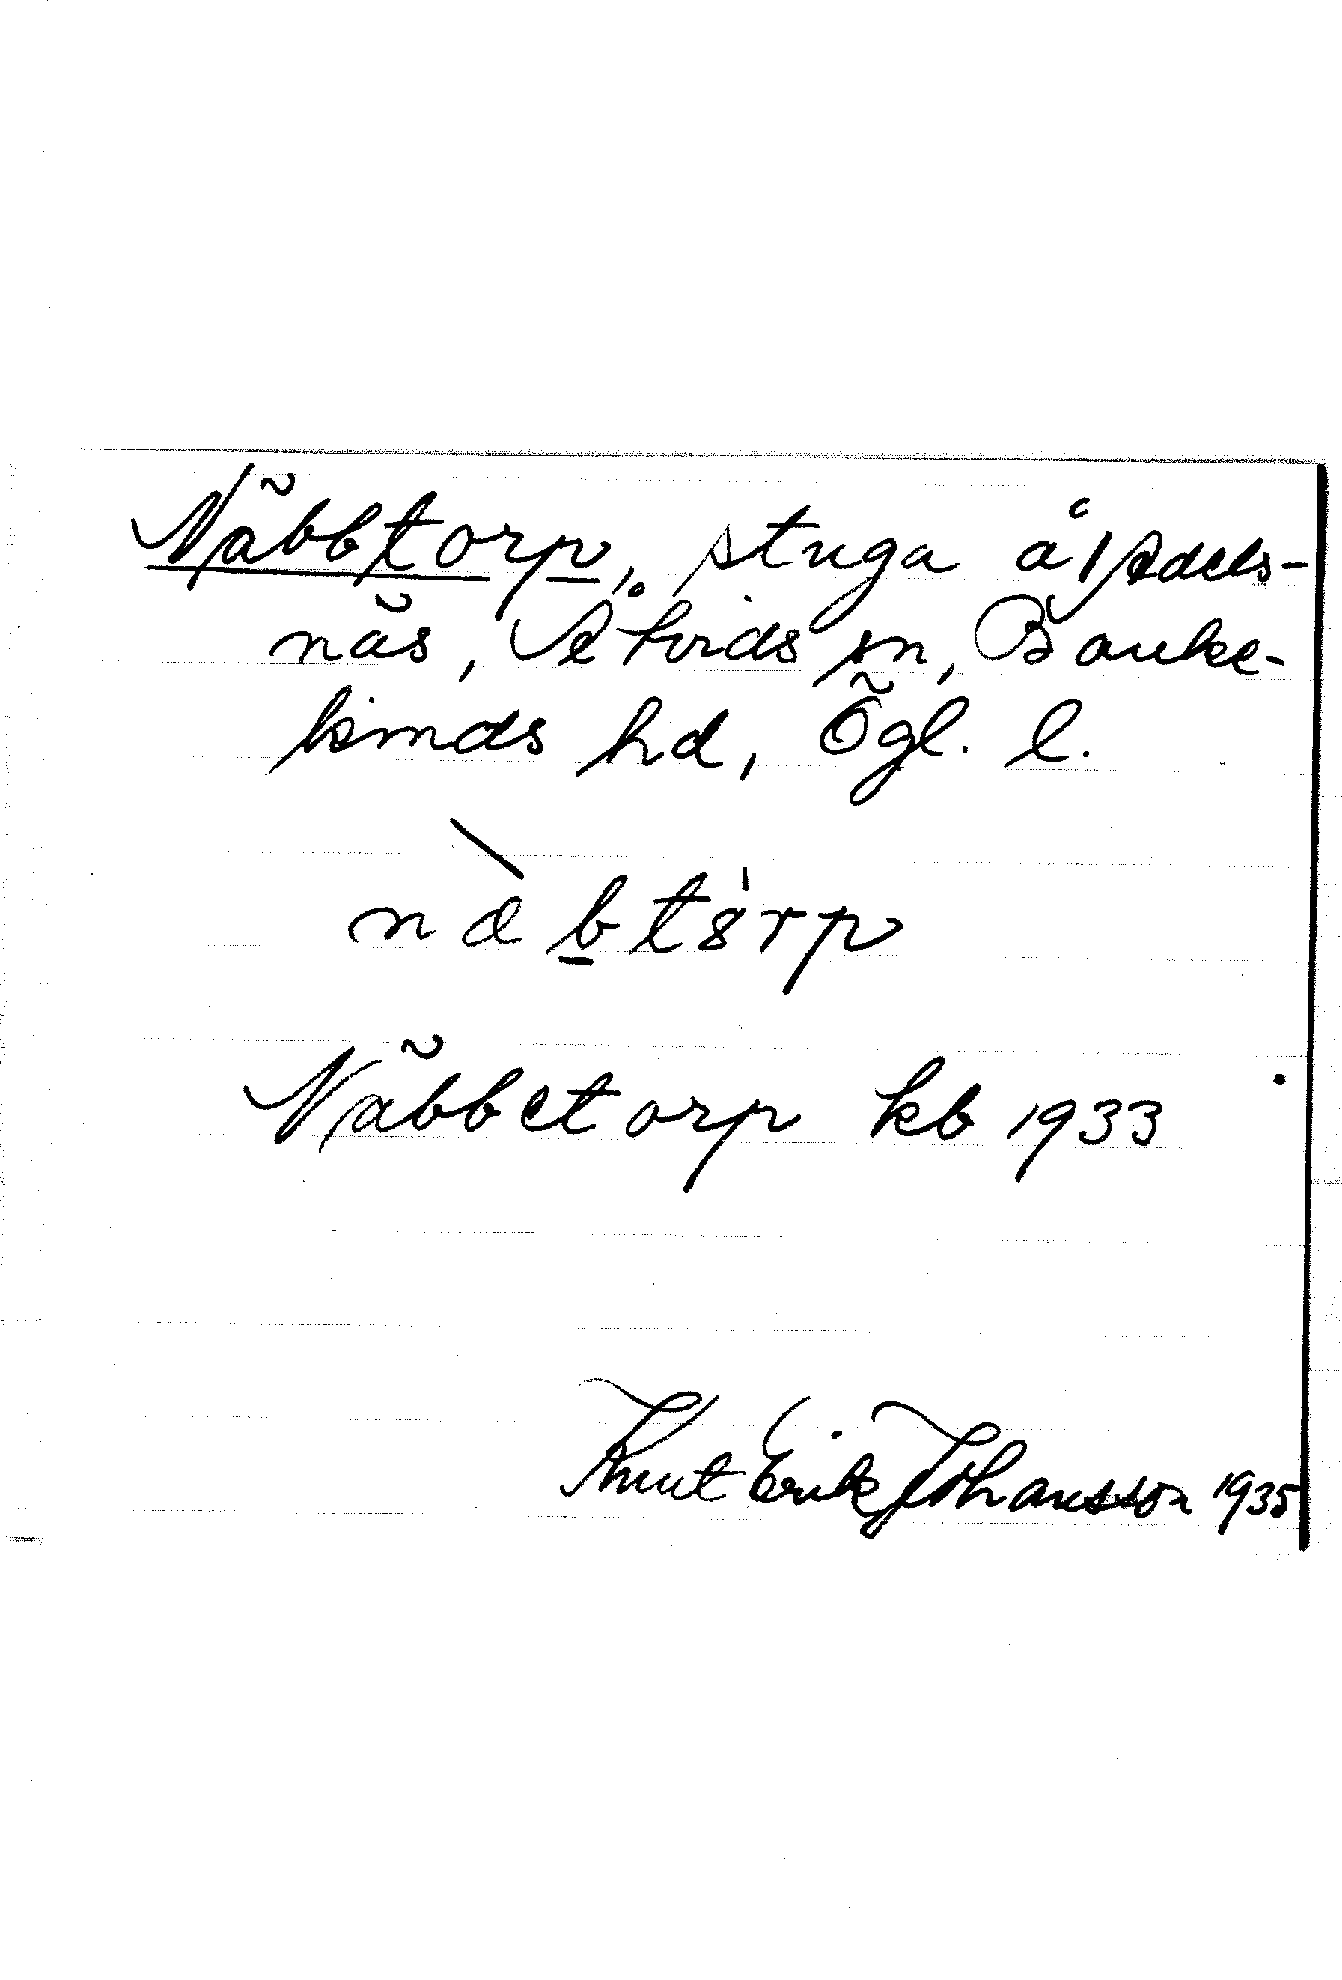 Näbbtorp, stuga å Adels-
näs, Åtvids sn, Banke-
kinds hd, Ögl. l.
Näbbetorp kb 1933
Knut Erik Johansson 1935